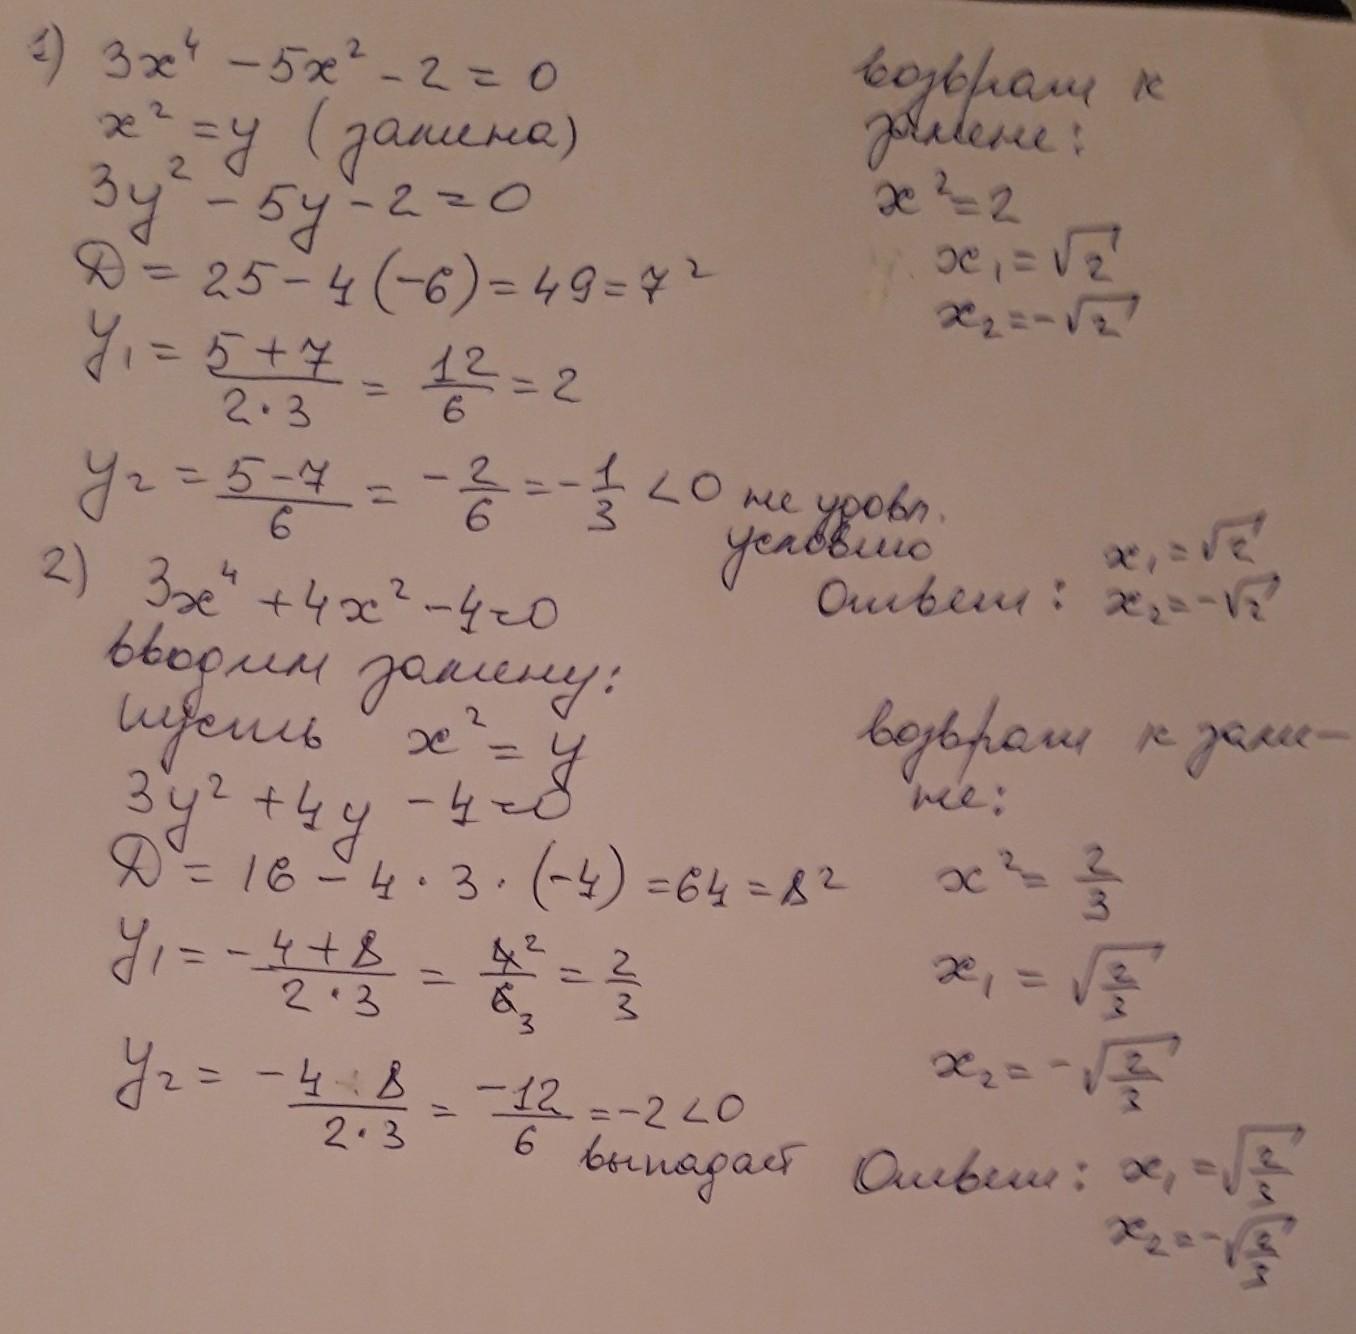 1) 3x⁴ - 5x² - 2 = 0
x² = y (замена)
3y² - 5y - 2 = 0
D = 25 - 4(-6) = 49 = 7²
y₁ = (5+7)/(2·3) = 12/6 = 2
y₂ = (5-7)/6 = -2/6 = -1/3 < 0 не удовл.
условию
возврат к
замене:
x² = 2
x₁ = √2
x₂ = -√2
Ответ: x₁ = √2
x₂ = -√2
2) 3x⁴ + 4x² - 4 = 0
вводим замену:
пусть x² = y
3y² + 4y - 4 = 0
D = 16 - 4·3·(-4) = 64 = 8²
y₁ = (-4+8)/(2·3) = 4²/6₃ = 2/3
y₂ = (-4 8)/(2·3) = -12/6 = -2 < 0
выпадает
возврат к заме-
не:
x² = 2/3
x₁ = √(2/3)
x₂ = -√(2/3)
Ответ: x₁ = √(2/3)
x₂ = -√(2/3)